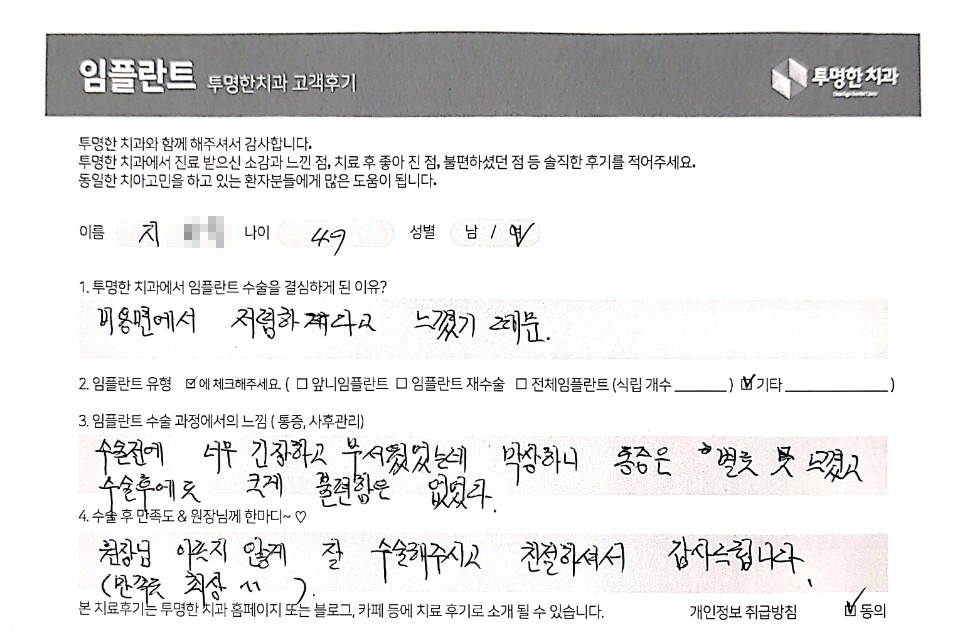 임플란트 투명한치과 고객후기
투명한치과
투명한 치과와 함께 해주셔서 감사합니다.
투명한 치과에서 진료 받으신 소감과 느낀 점, 치료 후 좋아 진 점, 불편하셨던 점 등 솔직한 후기를 적어주세요.
동일한 치아고민을 하고 있는 환자분들에게 많은 도움이 됩니다.
이름 지 나이 49 성별 남 / 여
1. 투명한 치과에서 임플란트 수술을 결심하게 된 이유?
비용면에서 저렴하다고 느꼈기 때문.
2. 임플란트 유형 ☑에 체크해주세요. ( ☐ 앞니임플란트 ☐ 임플란트 재수술 ☐ 전체임플란트 (식립 개수 ______ ) ☑ 기타 ____________ )
3. 임플란트 수술 과정에서의 느낌 ( 통증, 사후관리)
수술전에 너무 긴장하고 무서웠었는데 막상하니 통증은 별로 못 느꼈고
수술후에도 크게 불편함은 없었다.
4. 수술 후 만족도 & 원장님께 한마디~ ♡
원장님 아프지 않게 잘 수술해주시고 친절하셔서 감사드립니다.
(만족도 최상 ^^ ).
본 치료후기는 투명한 치과 홈페이지 또는 블로그, 카페 등에 치료 후기로 소개 될 수 있습니다. 개인정보 취급방침 ☑ 동의